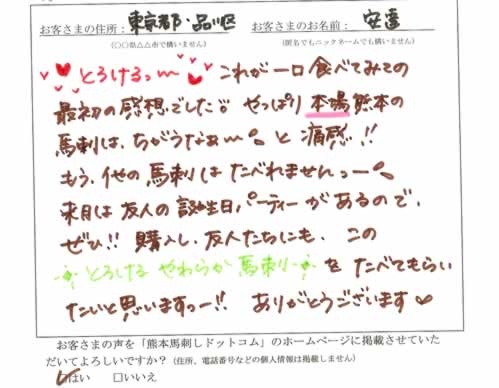 お客さまの住所：東京都・品川区　お客さまのお名前：安達
(〇〇県△△市で構いません)　(匿名でもニックネームでも構いません)
とろけるっ〜 これが一口食べてみての
最初の感想でした!! やっぱり本場熊本の
馬刺は、ちがうなぁ〜 と痛感!!
もう、他の馬刺しはたべれませんっー
来月は友人の誕生日パーティーがあるので、
ぜひ!! 購入し、友人たちにも、この
とろける やわらか 馬刺し を たべてもらい
たいと思いますっー!! ありがとうございます♥
お客さまの声を「熊本馬刺しドットコム」のホームページに掲載させていた
だいてよろしいですか？(住所、電話番号などの個人情報は掲載しません)
☑はい　□いいえ